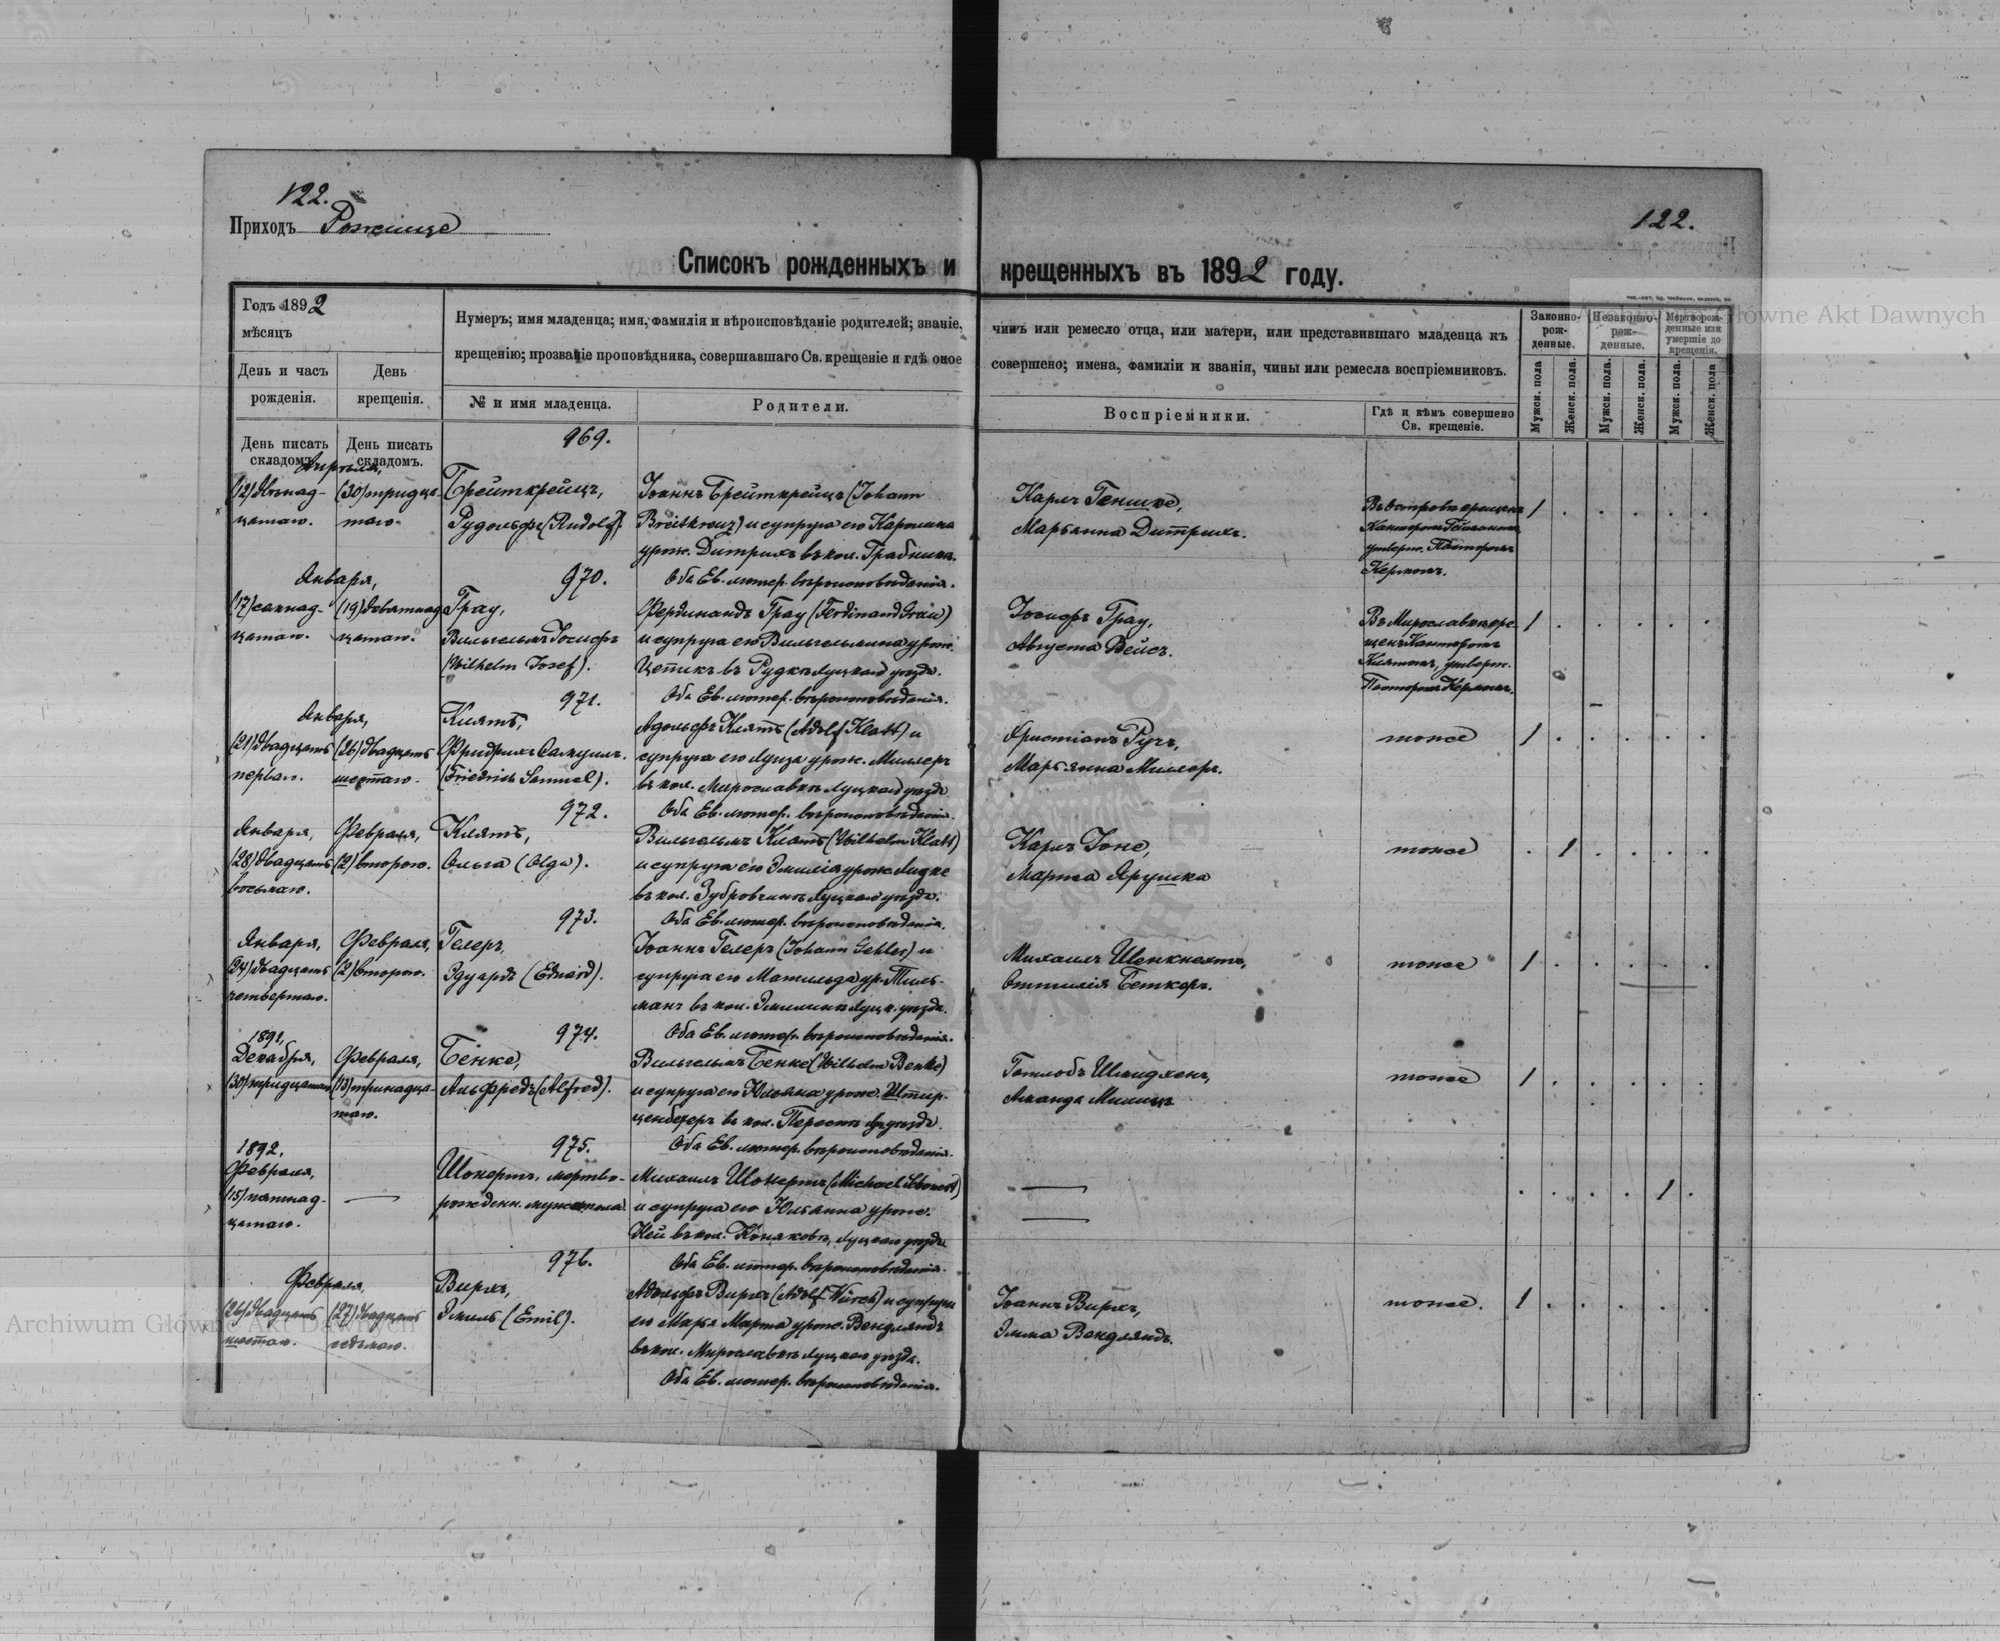 122.
Приходъ Рожище
122.
Списокъ рожденныхъ и крещенныхъ въ 1892 году.
Годъ 1892
мѣсяцъ
День и часъ рожденія.
День крещенія.
Нумеръ; имя младенца; имя, фамилія и вѣроисповѣданіе родителей; званіе, чинъ или ремесло отца, или матери, или представившаго младенца къ
крещенію; прозваніе проповѣдника, совершавшаго Св. крещеніе и гдѣ оное совершено; имена, фамиліи и званія, чины или ремесла воспріемниковъ.
№ и имя младенца.
Родители.
Воспріемники.
Гдѣ и кѣмъ совершено Св. крещеніе.
Законно-рож-денные.
Незаконно-рож-денные.
Мертворож-денные или умершіе до крещенія.
Мужск. пола.
Женск. пола.
Мужск. пола.
Женск. пола.
Мужск. пола.
Женск. пола
День писать складомъ.
День писать складомъ.
969.
Апрѣля,
(12) двѣнад-
цатаго.
(30) тридца-
таго.
Брейткрейцъ,
Рудольфъ (Rudolf).
Іоаннъ Брейткрейцъ (Johann
Breitkreuz) и супруга его Каролина
урож. Дитрихъ въ кол.
Оба Ев. лютер. вѣроисповѣданія.
Карлъ Геншке,
Марьянна Дитрихъ.
крещенъ
Канторомъ
утверж. Пасторомъ
Кермомъ.
1
970.
Января,
(17) семнад-
цатаго.
(19) девятнад
цатаго.
Грау,
Вильгельмъ Іосифъ
(Wilhelm Josef).
Фердинандъ Грау (Ferdinand Grau)
и супруга его Вильгельмина урож.
Цепикъ въ Рудкѣ Луцкаго уѣзда.
Оба Ев. лютер. вѣроисповѣданія.
Іосифъ Грау,
Августа Вейсъ.
Въ Мирославкѣ кре-
щенъ Канторомъ
Клятомъ, утверж.
Пасторомъ Кермомъ.
1
971.
Января,
(21) двадцать
перваго.
(26) двадцать
шестаго.
Клятъ,
Фридрихъ Самуилъ.
(Friedrich Samuel).
Адольфъ Клятъ (Adolf Klatt) и
супруга его Луиза урож. Миллеръ
въ кол. Мирославкѣ Луцкаго уѣзда
Оба Ев. лютер. вѣроисповѣданія.
Христіанъ Ручъ,
Марьянна Миллеръ.
тоже
1
972.
Января,
(28) двадцать
восьмаго.
Февраля,
(2) втораго.
Клятъ,
Ольга (Olga).
Вильгельмъ Клятъ (Wilhelm Klatt)
и супруга его Эмилія урож. Лидке
въ кол. Зубровчинѣ Луцкаго уѣзда.
Оба Ев. лютер. вѣроисповѣданія.
Карлъ Іонс,
Марта Ярушка
тоже
1
973.
Января,
(24) двадцать
четвертаго.
Февраля,
(2) втораго.
Гелеръ,
Эдуардъ (Eduard).
Іоаннъ Гелеръ (Johann Gehler) и
супруга его Матильда ур. Тиль-
манъ въ кол. Эмилинѣ Луцк. уѣзда.
Оба Ев. лютер. вѣроисповѣданія.
Михаилъ Шенкнехтъ,
Оттилія Беткеръ.
тоже
1
974.
1891,
Декабря,
(30) тридцатаго
Февраля,
(13) тринадца-
таго.
Бенке,
Альфредъ (Alfred).
Вильгельмъ Бенке (Wilhelm Benke)
и супруга его Юльяна урож. Штир-
ценбехеръ въ кол.
Оба Ев. лютер. вѣроисповѣданія.
Готлобъ Шмидхенъ,
Аманда Милицъ
тоже
1
975.
1892,
Февраля,
(15) пятнад-
цатаго.
Шонертъ, мертво-
рожденн. мужс. пола.
Михаилъ Шонертъ (Michael Schonert)
и супруга его Юльянна урож.
Ней въ кол. Луцкаго уѣзда
Оба Ев. лютер. вѣроисповѣданія.
1
976.
Февраля,
(26) двадцать
шестаго.
(27) двадцать
седьмаго.
Вирхъ,
Эмиль (Emil).
Адольфъ Вирхъ (Adolf Würch) и супруга
его Марья Марта урож. Вендляндъ
въ кол. Мирославкѣ Луцкаго уѣзда.
Оба Ев. лютер. вѣроисповѣданія.
Іоаннъ Вирхъ,
Эмма Вендляндъ.
тоже.
1
Archiwum Główne Akt Dawnych
Główne Akt Dawnych